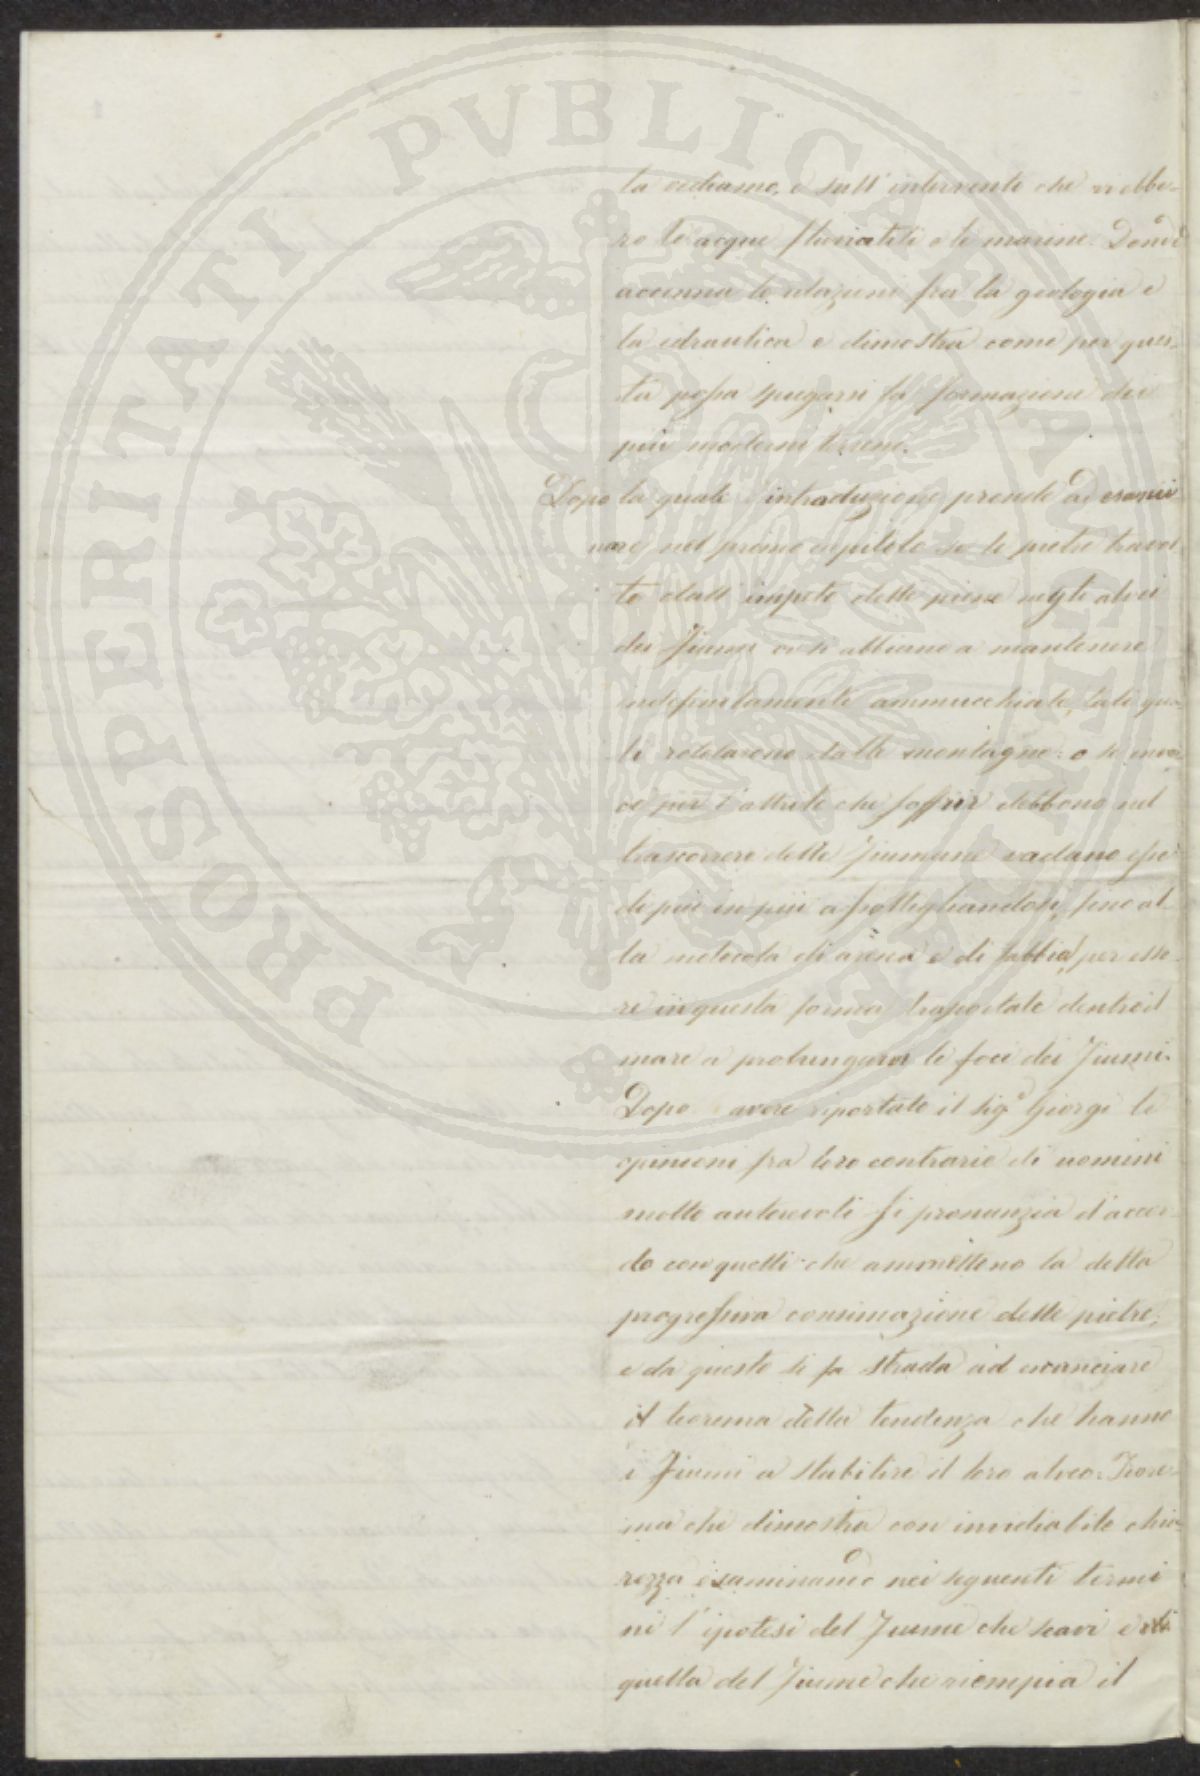 la vediamo, e sull' intervento che vi ebbe-
ro le acque fluviatili e le marine. Dond'
accenna le relazioni fra la geologia e
la idraulica e dimostra come per ques-
ta possa spiegarsi la formazione dei
più moderni terreni.
Dopo la quale introduzione prende ad esami
nare nel primo capitolo se le pietre travol
te dall' impeto delle piene negli alvei
dei fiumi vi si abbiano a mantenere
indefinitamente ammucchiate, tali qua
li rotolarono dalle montagne: o se inve
ce per l'attrito che soffrir debbono nel
trascorrere delle fiumane vadano esse
di più in più assottigliandosi, fino al
la molecola di arena e di sabbia, per esse
re in questa forma trasportate dentro il
mare a prolungarvi le foci dei fiumi.
Dopo avere riportate il Sig.e Giorgi le
opinioni fra loro contrarie di uomini
molto autorevoli si pronunzia d'accor-
do con quelli che ammettono la detta
progressiva consumazione delle pietre,
e da questo si fa strada ad enunciare
il teorema della tendenza che hanno
i fiumi a stabilire il loro alveo. Teore-
ma che dimostra con invidiabile chia-
rezza esaminando nei seguenti termi
ni l' ipotesi del fiume che scavi e
quella del fiume che riempia il
PROSPERITATI PVBLICAE AVGENDAE